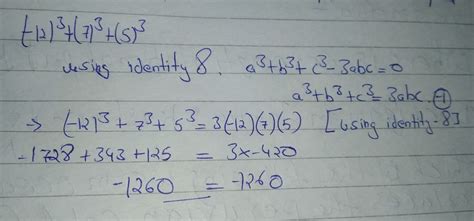 (-12)³+(7)³+(5)³
using identity 8. a³+b³+c³-3abc=0
a³+b³+c³=3abc.-①
→ (-12)³+7³+5³=3(-12)(7)(5) [using identity-8]
-1728+343+125 = 3x-420
-1260 = -1260